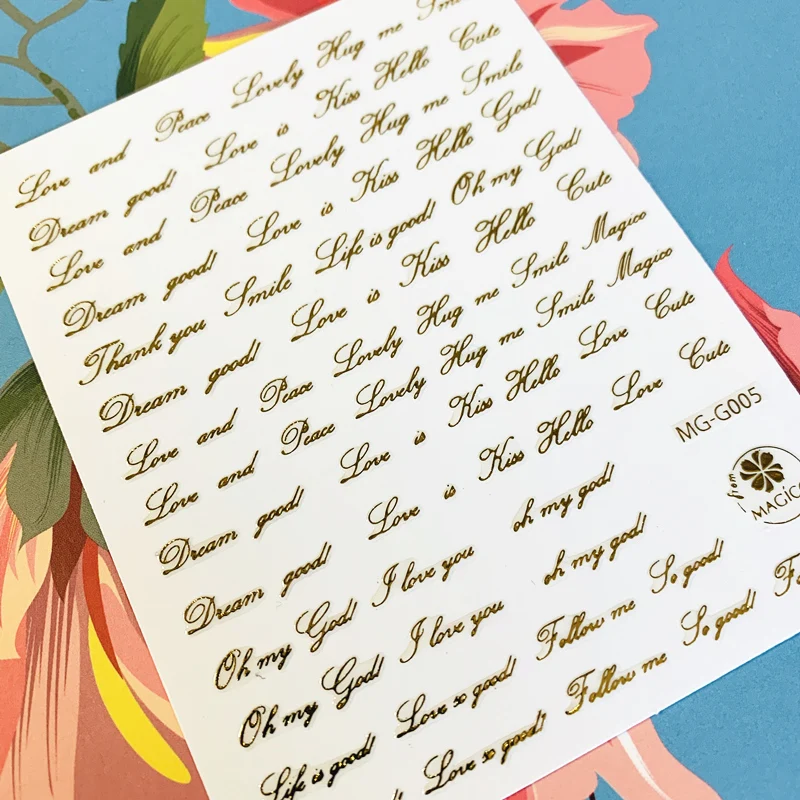 Love and Peace Lovely Hug me
Dream good! Love is Kiss Hello Cute
Love and Peace Lovely Hug me Smile
Dream good! Love is Kiss Hello God!
Thank you Smile Life is good! Oh my God!
Dream good! Love is Kiss Hello Cute
Love and Peace Lovely Hug me Smile Magico
Love and Peace Lovely Hug me Smile Magico
Dream good! Love is Kiss Hello Love Cute
Dream good! Love is Kiss Hello Love Cute
Oh my God! I love you oh my god!
MG-G005
from
MAGICO
Oh my God! I love you oh my god!
Life is good! Love so good! Follow me So good!
Love so good! Follow me So good!